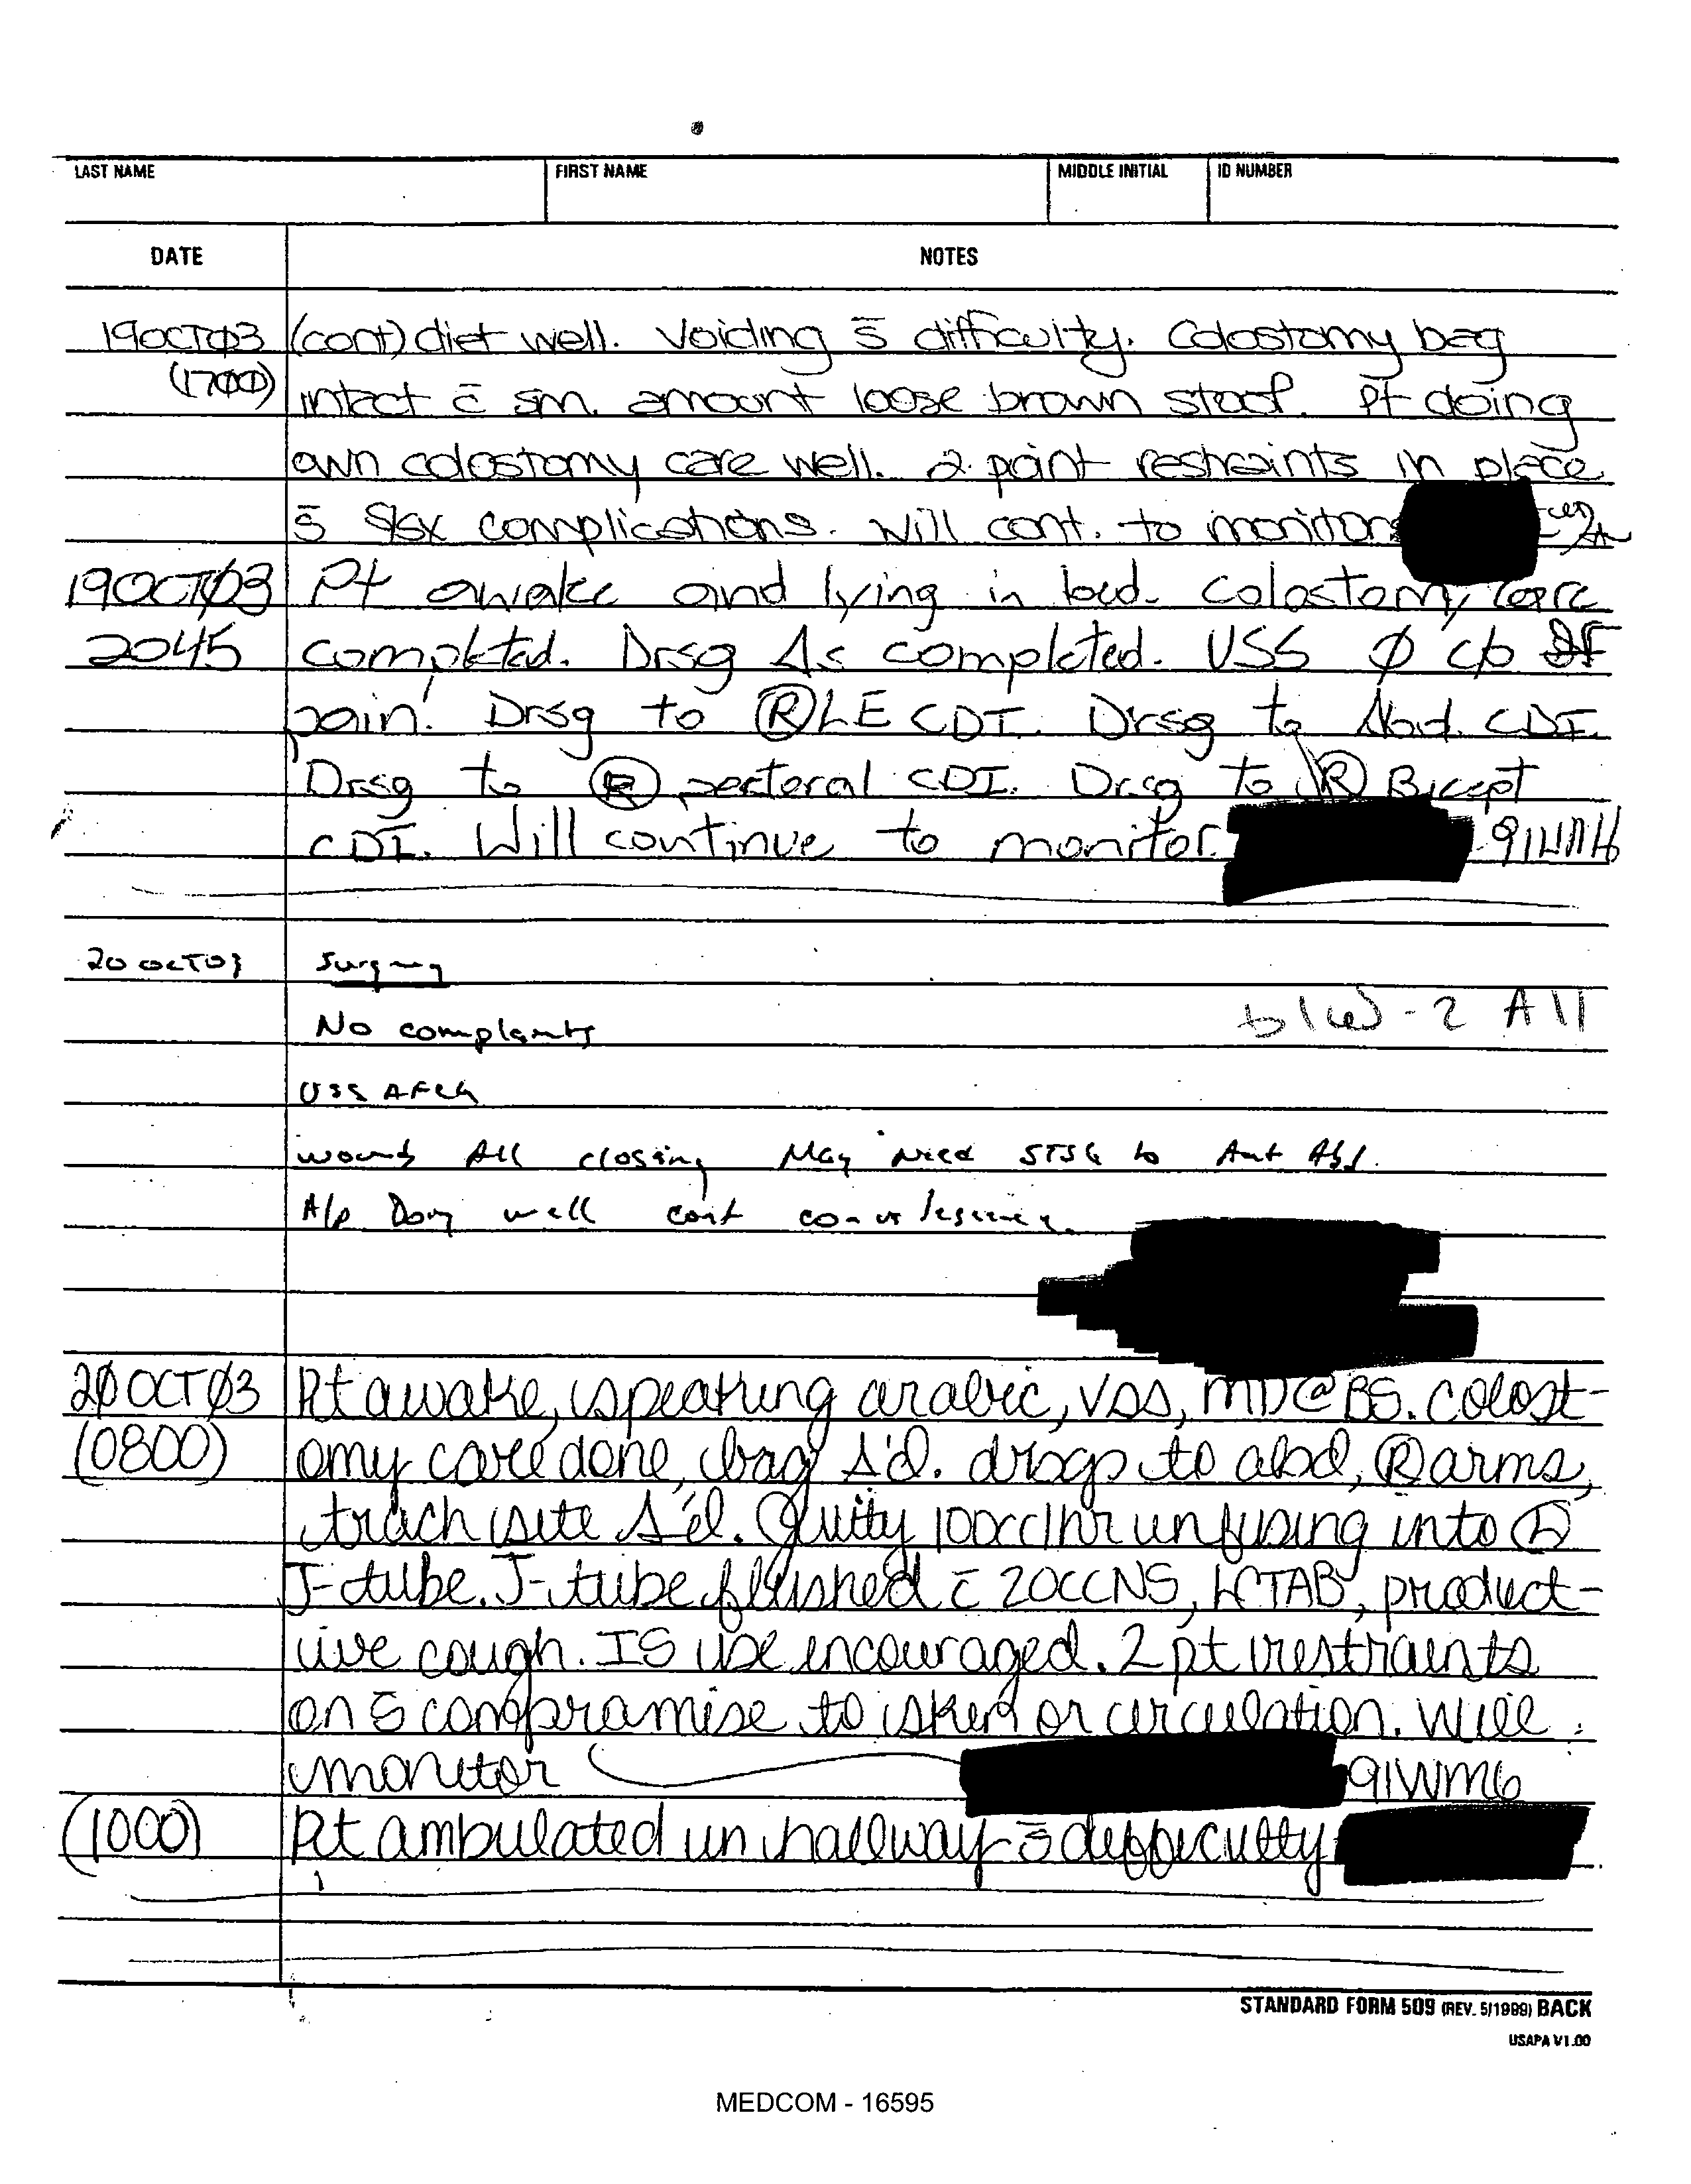 LAST NAME FIRST NAME MIDDLE INITIAL ID NUMBER
DATE NOTES
19OCTØ3 (cont) diet well. Voiding s̄ difficulty. Colostomy bag
(1700) intact c̄ sm. amount loose brown stool. Pt doing
own colostomy care well. 2 point restraints in place
s̄ s/sx complications. Will cont. to monitor
19OCTØ3 Pt awake and lying in bed. Colostomy care
2045 completed. Drsg Δs completed. VSS Ø c/o
pain. Drsg to Ⓡ LE CDI. Drsg to Abd. CDI.
Drsg to Ⓡ pectoral CDI. Drsg to Ⓡ Bicept
CDI. Will continue to monitor.
20 OCT03 Surgery
b(6)-2 All
No complaints
VSS AFeb
wounds All closing May need STSG to Ant Abd.
A/P Doing well cont convalescence.
2Ø OCTØ3 Pt awake, speaking arabic, VSS, MD@BS. Colost-
(0800) omy care done, bag Δ'd. drsgs to abd, Ⓡ arms,
trach site Δ'd. 100cc/hr infusing into
J-tube. J-tube flushed c̄ 20CC NS, LCTAB, product-
ive cough. IS use encouraged. 2 pt restraints
on s̄ compramise to skin or circulation. Will
monitor 91WM6
(1000) Pt ambulated in hallway s̄ difficulty
STANDARD FORM 509 (REV. 5/1999) BACK
USAPA V1.00
MEDCOM - 16595